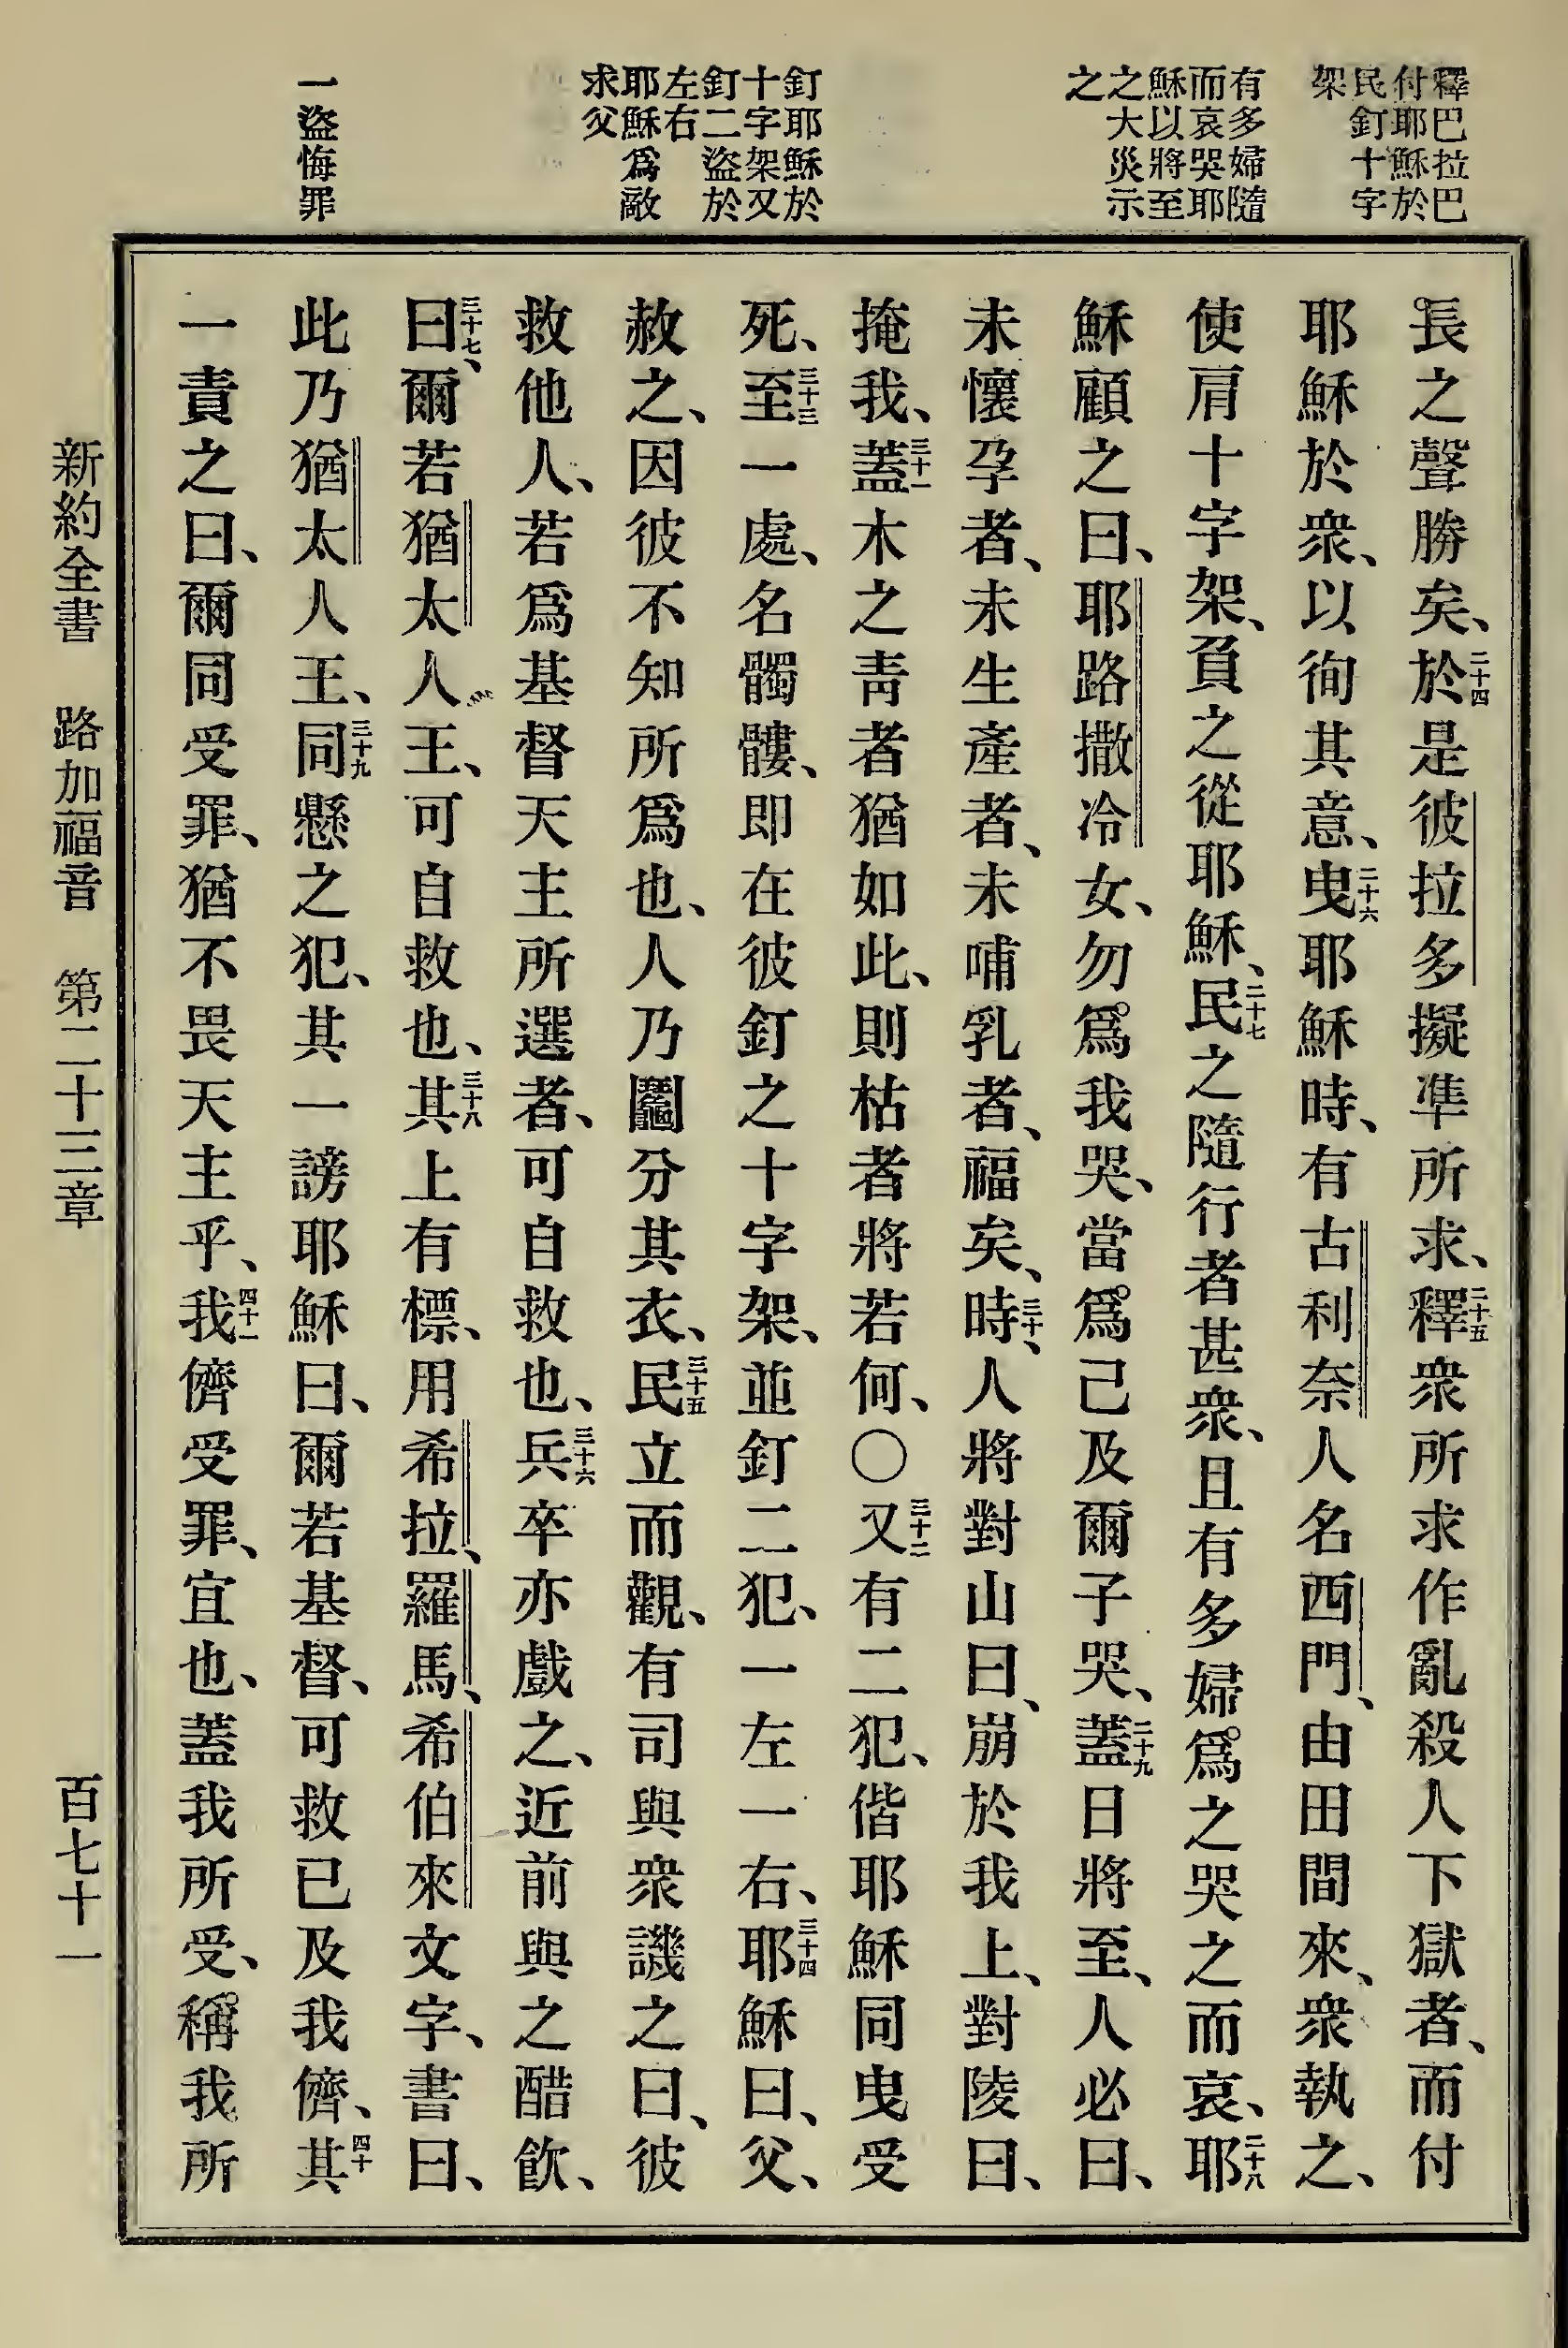 釋巴拉巴
付耶穌於
民釘十字
架
有多婦隨
而哀哭耶
穌以將至
之大災示
之
釘耶穌於
十字架又
釘二盜於
左右
耶穌爲敵
求父
一盜悔罪
長之聲勝矣、二十四於是彼拉多擬準所求、二十五釋衆所求作亂殺人下獄者、而付
耶穌於衆、以徇其意、二十六曳耶穌時、有古利奈人名西門、由田間來、衆執之、
使肩十字架、負之從耶穌、二十七民之隨行者甚衆、且有多婦爲之哭之而哀、二十八耶
穌顧之曰、耶路撒冷女、勿爲我哭、當爲己及爾子哭、二十九蓋日將至、人必曰、
未懷孕者、未生產者、未哺乳者、福矣、三十時、人將對山曰、崩於我上、對陵曰、
掩我、三十一蓋木之靑者猶如此、則枯者將若何、〇三十二又有二犯、偕耶穌同曳受
死、三十三至一處、名髑髏、即在彼釘之十字架、並釘二犯、一左一右、三十四耶穌曰、父、
赦之、因彼不知所爲也、人乃鬮分其衣、三十五民立而觀、有司與衆譏之曰、彼
救他人、若爲基督天主所選者、可自救也、三十六兵卒亦戲之、近前與之醋飮、
三十七曰、爾若猶太人王、可自救也、三十八其上有標、用希拉、羅馬、希伯來文字、書曰、
此乃猶太人王、三十九同懸之犯、其一謗耶穌曰、爾若基督、可救己及我儕、四十其
一責之曰、爾同受罪、猶不畏天主乎、四十一我儕受罪、宜也、蓋我所受、稱我所
新約全書 路加福音 第二十三章 百七十一